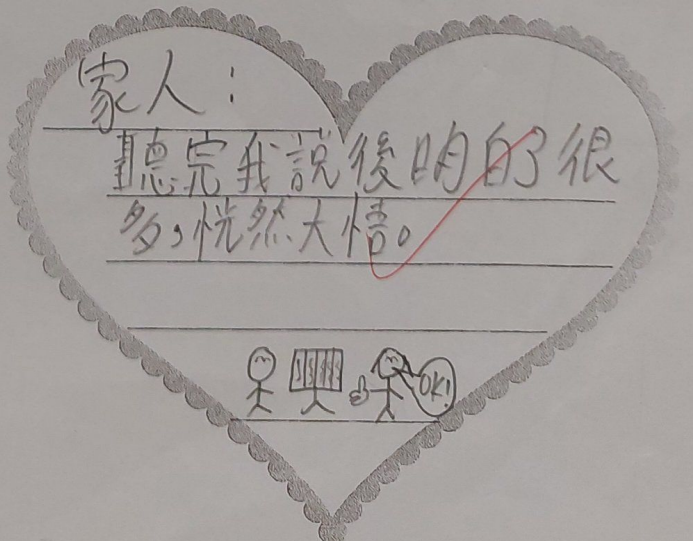 家人：
聽完我說後明白了很
多，恍然大悟。
OK!